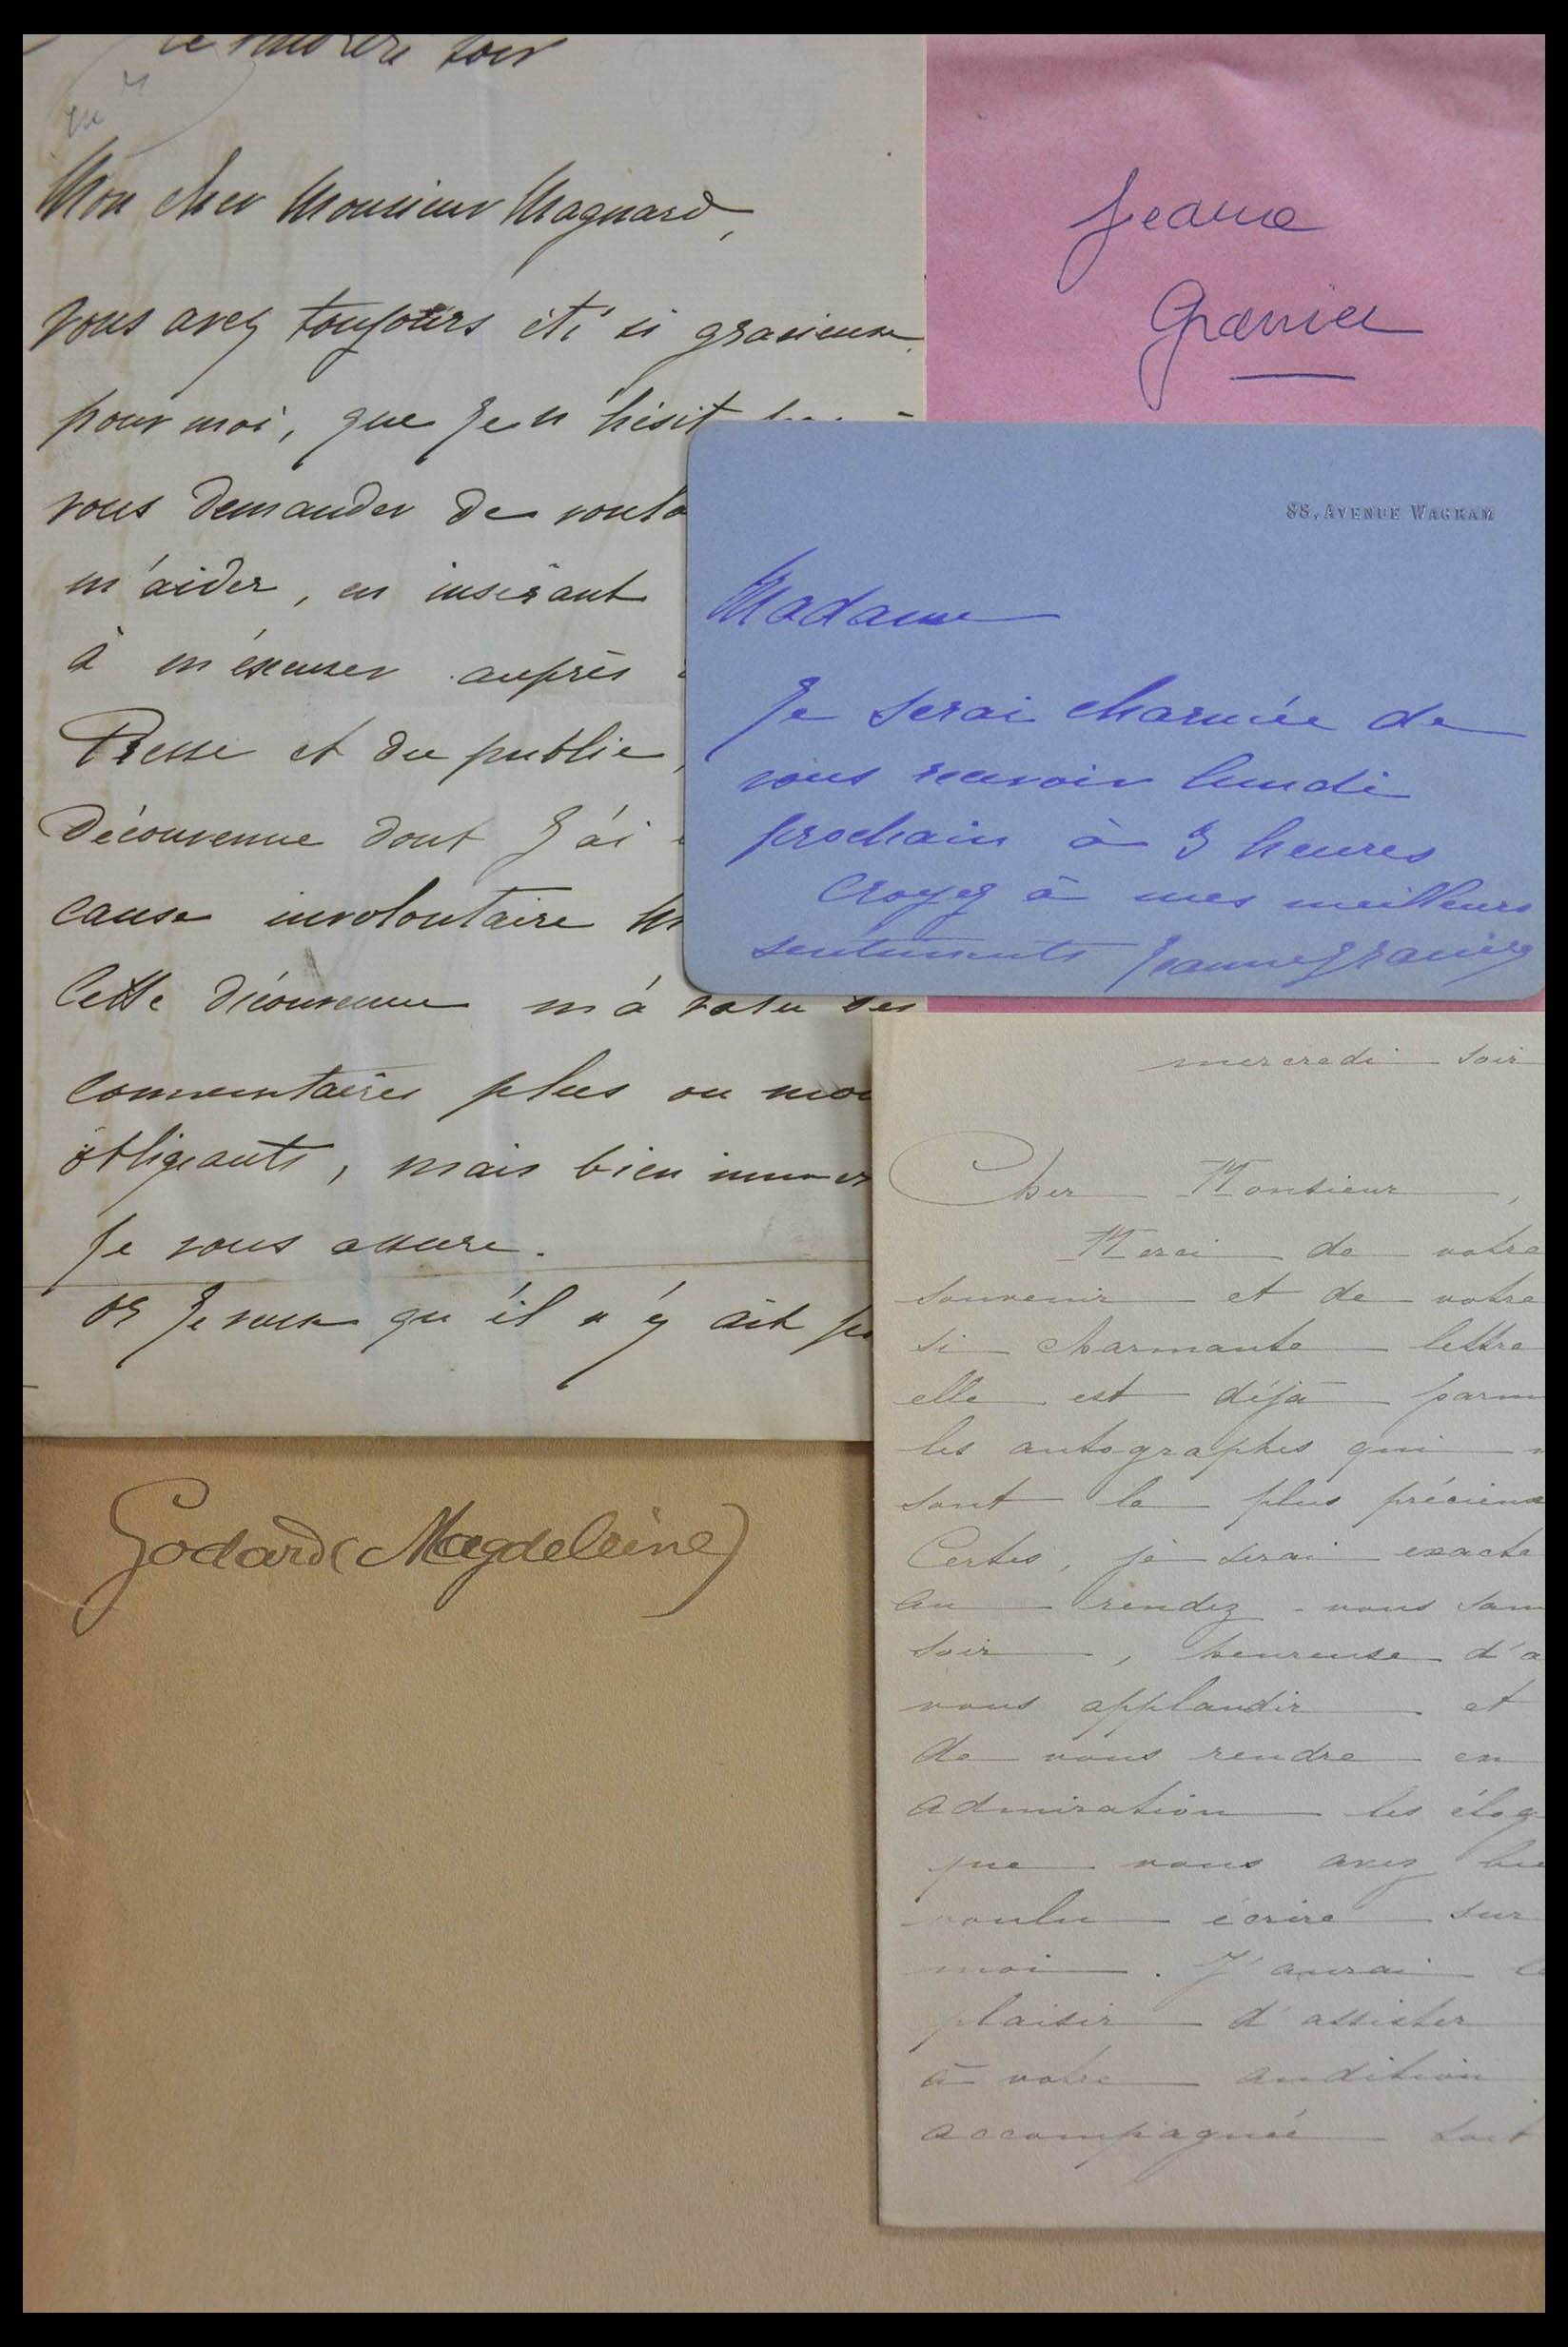 soir
Mon cher Monsieur Magnard,
vous avez toujours été si gracieux
pour moi, que je n'hésit
vous demander de
m'aider, en insérant
à m'éxcuser auprès
Presse et du public,
découvenue dont j'ai
cause involontaire
Cette découvenue m'a valu des
commentaires plus ou
obligeants, mais bien
je vous assure.
or je veux qu'il n'y ait
Jeanne
Granier
88, AVENUE WAGRAM
Madame
Je serai charmée de
vous recevoir lundi
prochain à 3 heures
Croyez à mes meilleurs
sentiments Jeanne Granier
mercredi soir
Cher Monsieur,
Merci de votre
souvenir et de votre
si charmante lettre
elle est déjà parm
les autographes qui
sont le plus précieux
Certes, je serai exacte
au rendez-vous sam
soir, heureuse d'a
vous applaudir et
de vous rendre en
admiration les élog
que vous avez bie
voulu écrire sur
moi. J'aurai le
plaisir d'assister
à votre audition
accompagnée soit
Godard (Magdeleine)